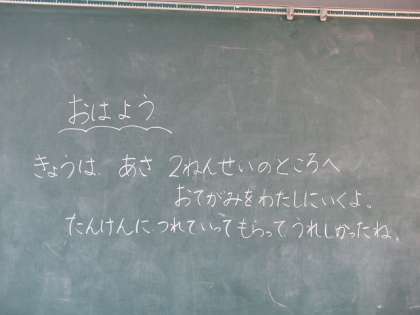 おはよう
きょうは あさ 2ねんせいのところへ
おてがみをわたしにいくよ。
たんけんに つれていってもらってうれしかったね。